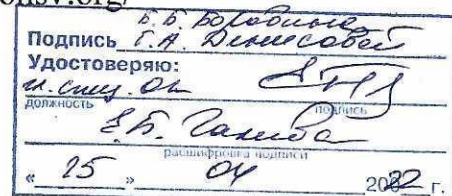 onsv.org/
Б.Б. Боровика
Подпись Е.А. Денисовой
Удостоверяю:
гл. спец. ОК
должность подпись
Е.Б. Ганеба
расшифровка подписи
« 25 » 04 2022 г.